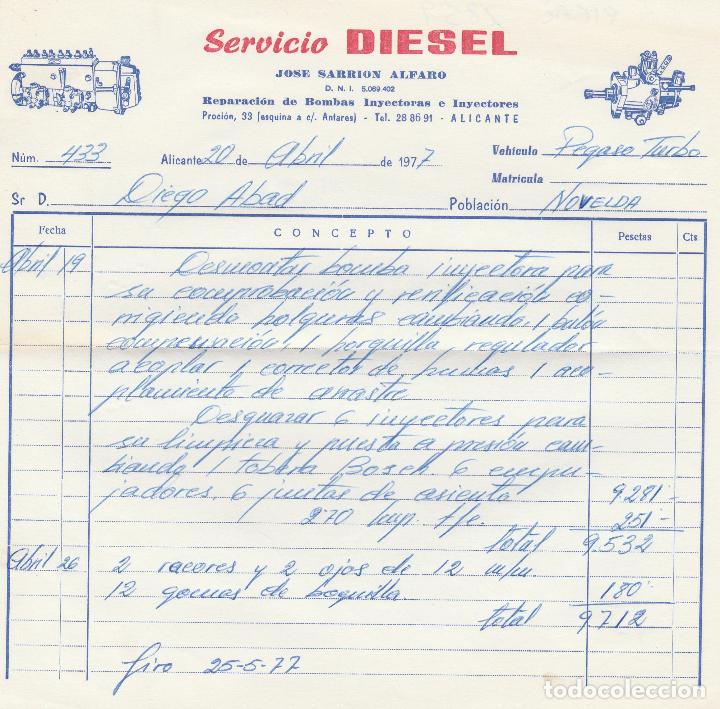 Servicio DIESEL
JOSE SARRION ALFARO
D. N. I. 5.069.402
Reparación de Bombas Inyectoras e Inyectores
Proción, 33 (esquina a c/. Antares) - Tel. 28 86 91 - ALICANTE
Núm. 433 Alicante 20 de Abril de 1977 Vehículo Pegaso Turbo
Matrícula
Sr D. Diego Abad Población NOVELDA
Fecha CONCEPTO Pesetas Cts
Abril 19 Desmontar bomba inyectora para
su comprobación y verificación co-
rrigiendo holguras cambiando. 1 bulón
compensación 1 horquilla regulador
acoplar 1 de bombas 1 aco-
plamiento de arrastre
Desguazar 6 inyectores para
su limpieza y puesta a presión cam-
biando 1 tobera Bosch 6 empu-
jadores. 6 juntas de asiento 9281-
2'70 Imp. t/e. 251-
total 9532
Abril 26 2 racores y 2 ojos de 12 m/m.
12 gomas de boquilla. 180-
total 9712
Giro 25-5-77
todocoleccion